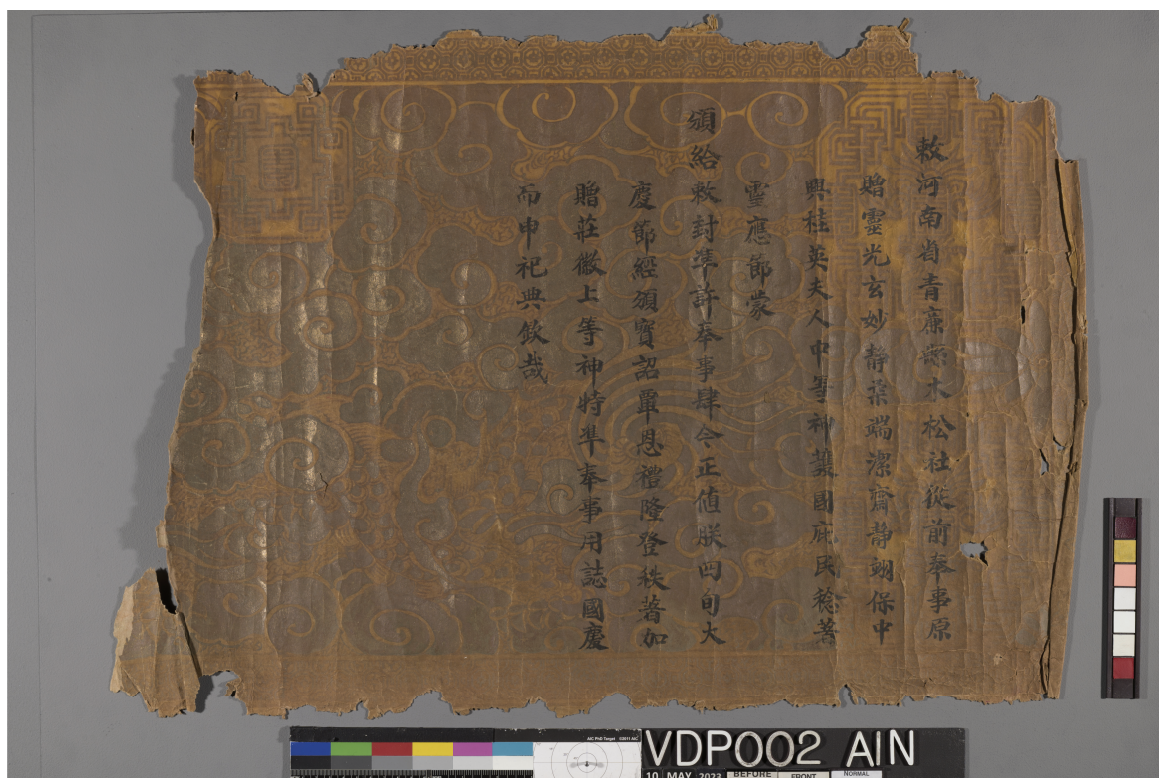 敕河南省青廉縣木松社從前奉事原
贈靈光玄妙靜柔端潔齋静翊保中
興桂英夫人中等神護國庇民稔著
靈應節蒙
頒給敕封準許奉事肆今正值朕四旬大
慶節經頒寶詔覃恩禮隆登秩著加
贈莊徽上等神特準奉事用誌國慶
而申祀典欽哉
VDP002 AIN
10 MAY 2023 BEFORE FRONT NORMAL